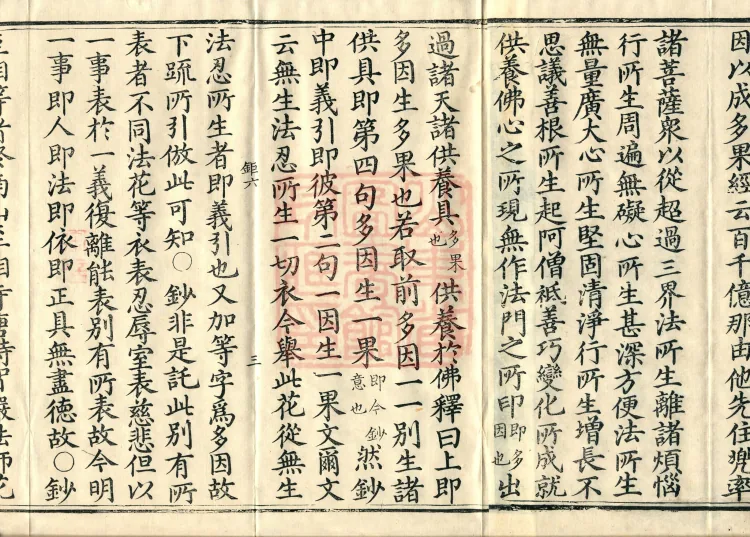 因以成多果經云百千億那由他先住兠率
諸菩薩衆以從超過三界法所生離諸煩惱
行所生周遍無礙心所生甚深方便法所生
無量廣大心所生堅固清淨行所生增長不
思議善根所生起阿僧祗善巧變化所成就
供養佛心之所現無作法門之所印即多因也出
過諸天諸供養具多果也供養於佛釋曰上即
多因生多果也若取前多因一一別生諸
供具即第四句多因生一果即今鈔意也然鈔
中即義引即彼第二句一因生一果文爾文
云無生法忍所生一切衣今舉此花從無生
鉅六
三
法忍所生者即義引也又加等字爲多因故
下䟽所引倣此可知○鈔非是託此別有所
表者不同法花等衣表忍辱室表慈悲但以
一事表於一義復離能表別有所表故今明
一事即人即法即依即正具無盡德故○鈔